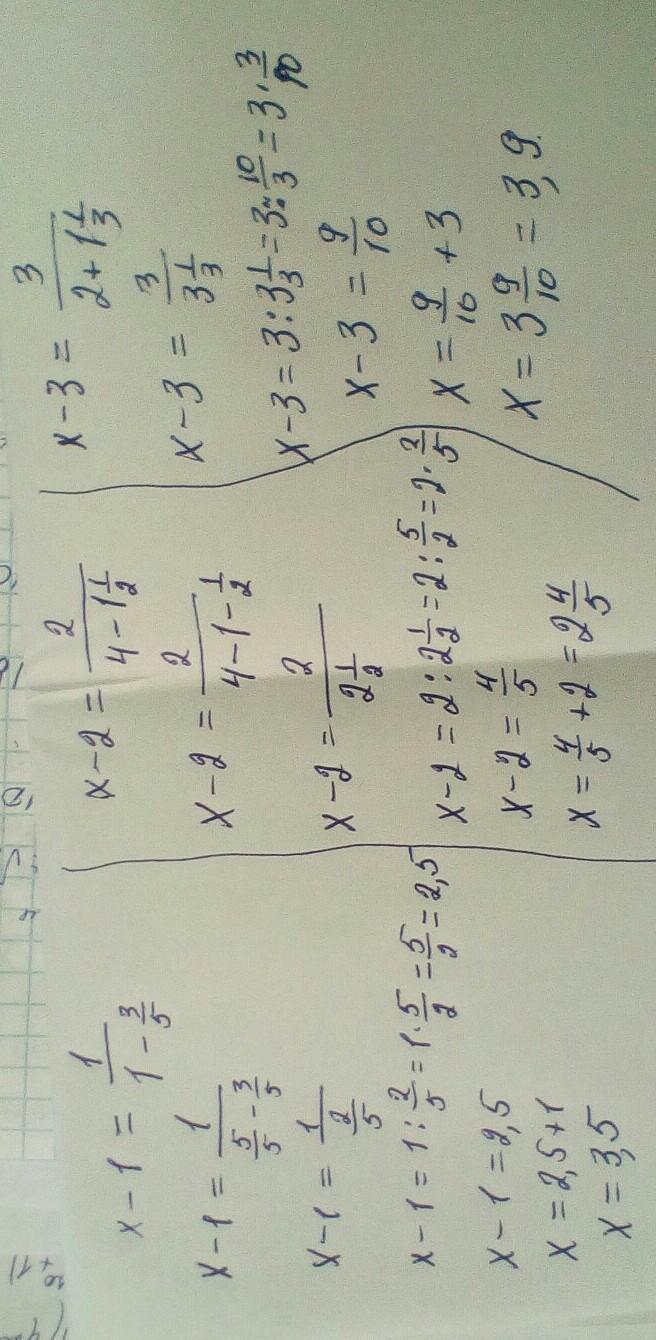 x - 1 = 1/(1 - 3/5)
x - 1 = 1/(5/5 - 3/5)
x - 1 = 1/(2/5)
x - 1 = 1 : 2/5 = 1 · 5/2 = 5/2 = 2,5
x - 1 = 2,5
x = 2,5 + 1
x = 3,5
x - 2 = 2/(4 - 1 1/2)
x - 2 = 2/(4 - 1 - 1/2)
x - 2 = 2/(2 1/2)
x - 2 = 2 : 2 1/2 = 2 : 5/2 = 2 · 2/5
x - 2 = 4/5
x = 4/5 + 2 = 2 4/5
x - 3 = 3/(2 + 1 1/3)
x - 3 = 3/(3 1/3)
x - 3 = 3 : 3 1/3 = 3 : 10/3 = 3 · 3/10
x - 3 = 9/10
x = 9/10 + 3
x = 3 9/10 = 3,9.